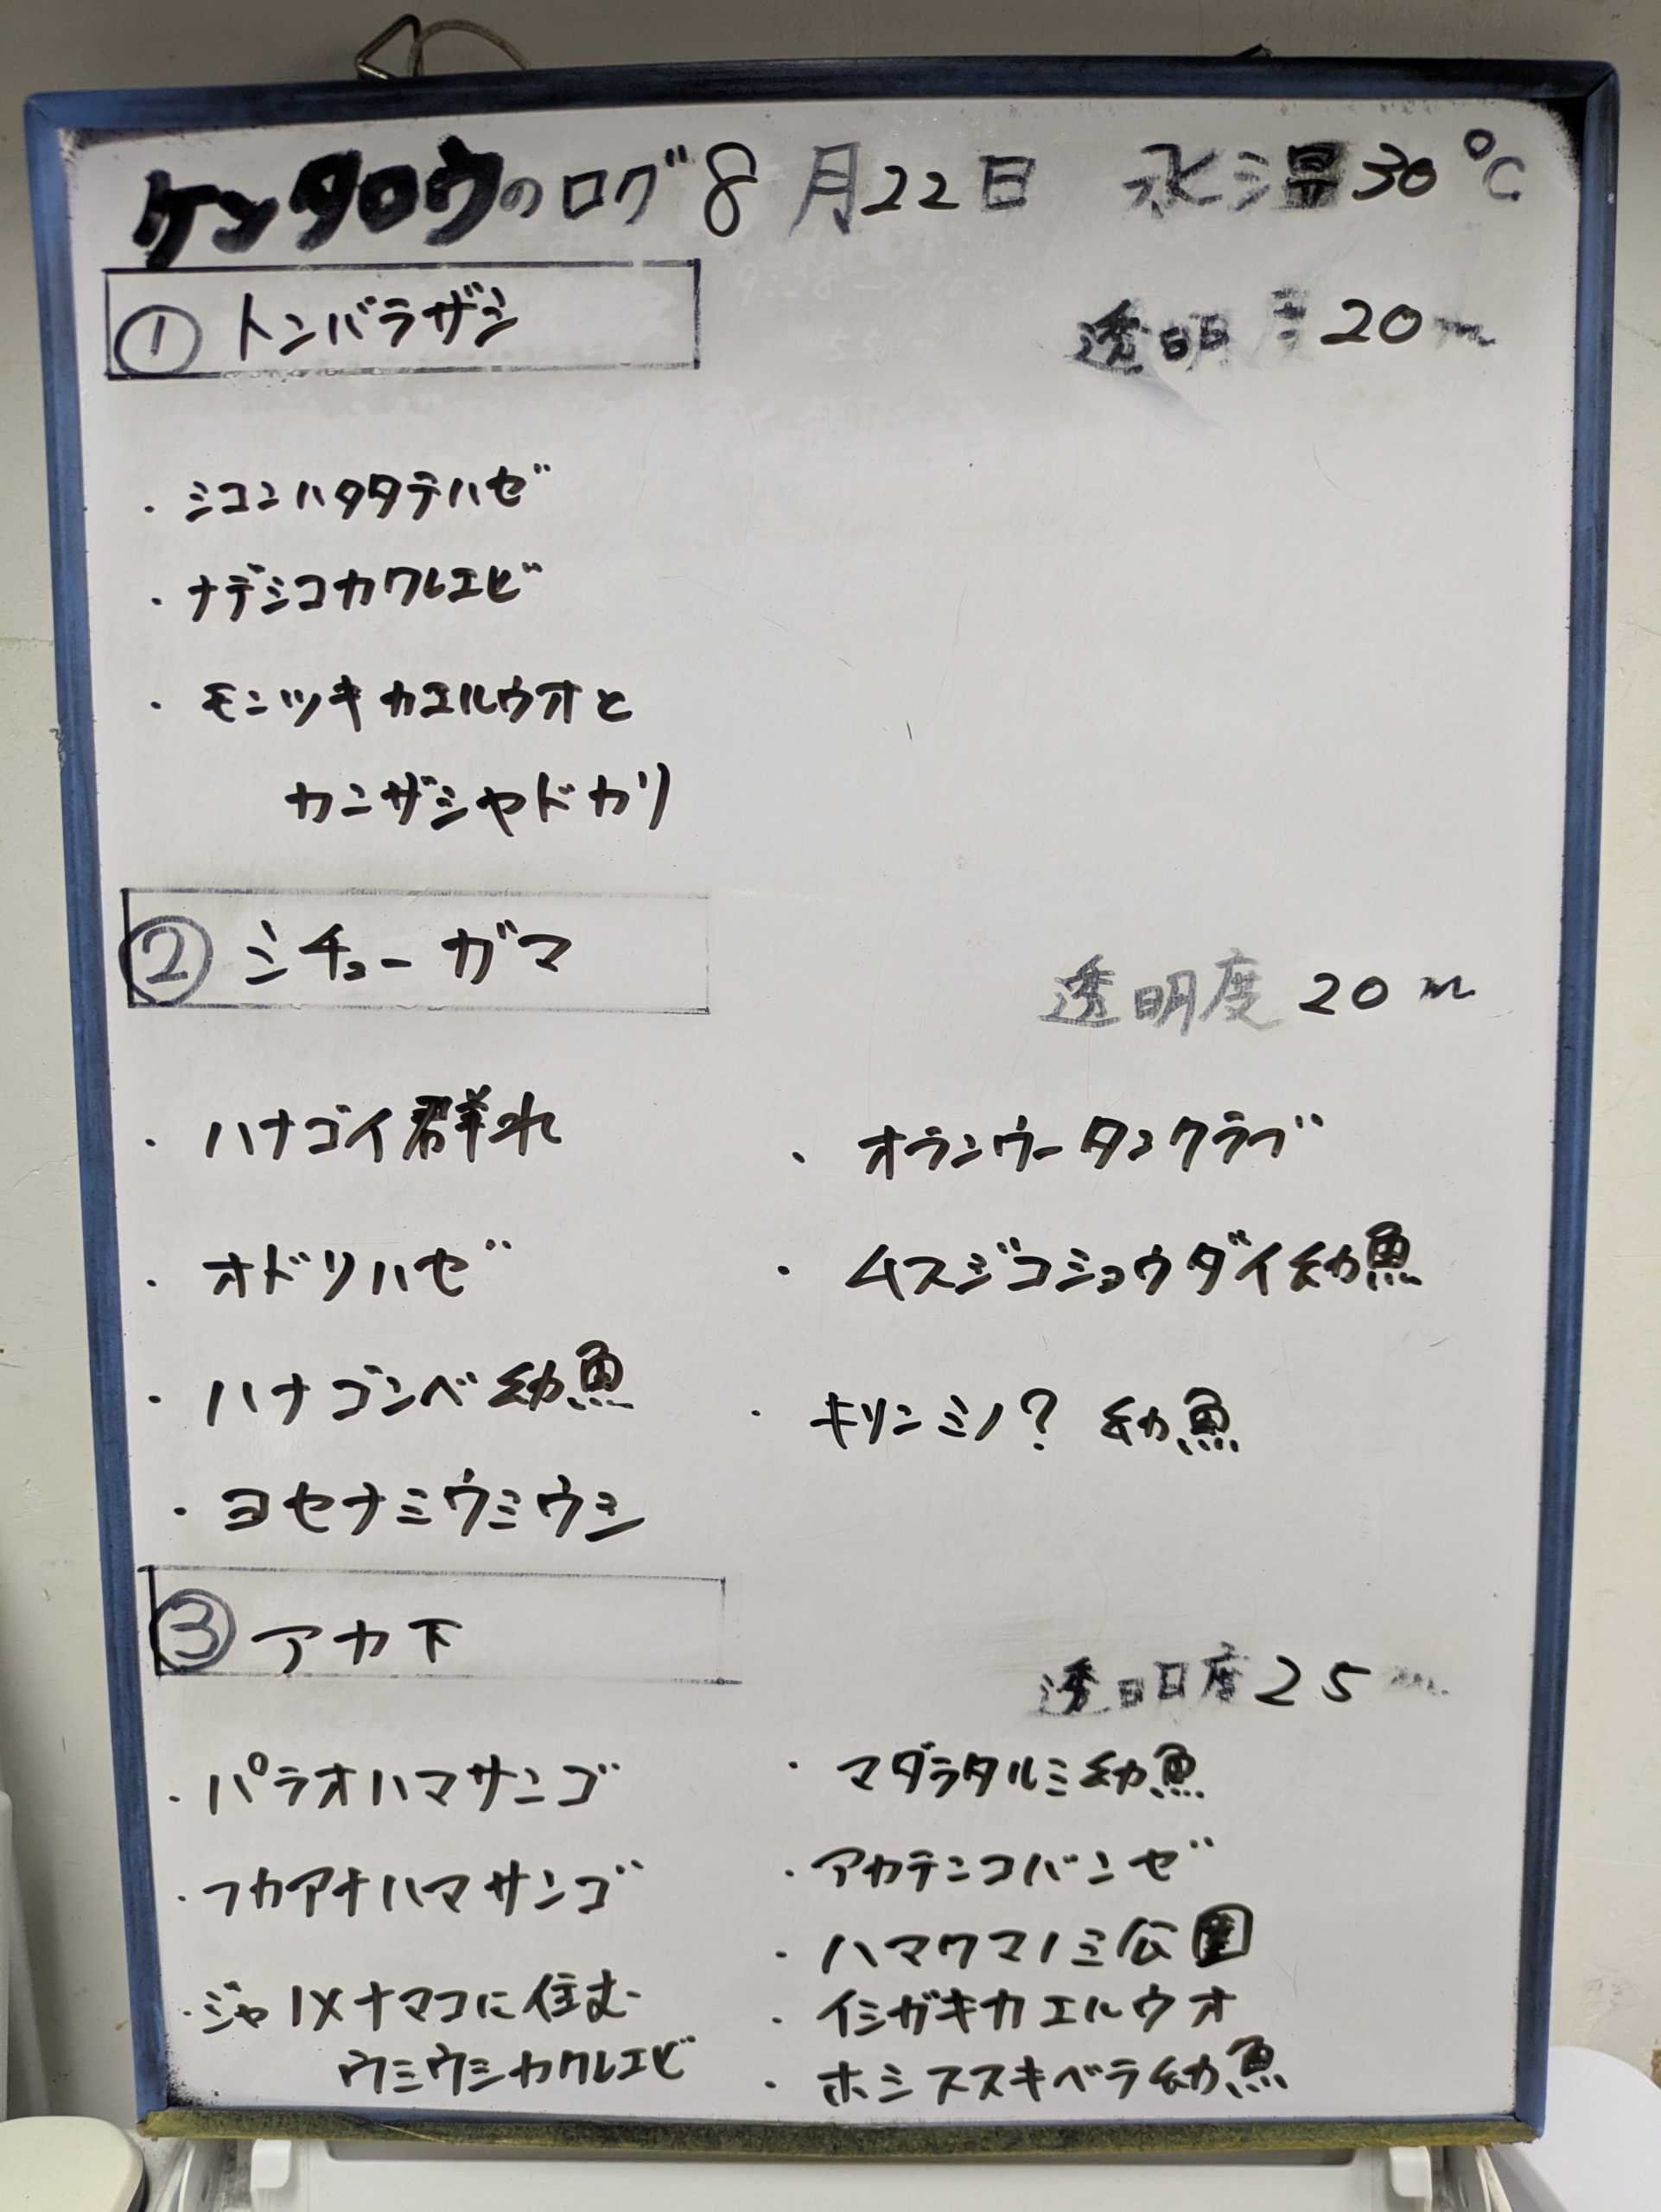 ケンタロウのログ 8月22日 水温30℃
① トンバラザシ
透明度 20m
・シコンハタタテハゼ
・ナデシコカクレエビ
・モンツキカエルウオと
カンザシヤドカリ
② シチューガマ
透明度 20m
・ハナゴイ群れ
・オドリハゼ
・ハナゴンベ幼魚
・ヨセナミウミウシ
・オランウータンクラブ
・ムスジコショウダイ幼魚
・キリンミノ? 幼魚
③ アカ下
透明度 25m
・パラオハマサンゴ
・フカアナハマサンゴ
・ジャノメナマコに住む
ウミウシカクレエビ
・マダラタルミ幼魚
・アカテンコバンゼ
・ハマクマノミ公園
・イシガキカエルウオ
・ホシススキベラ幼魚